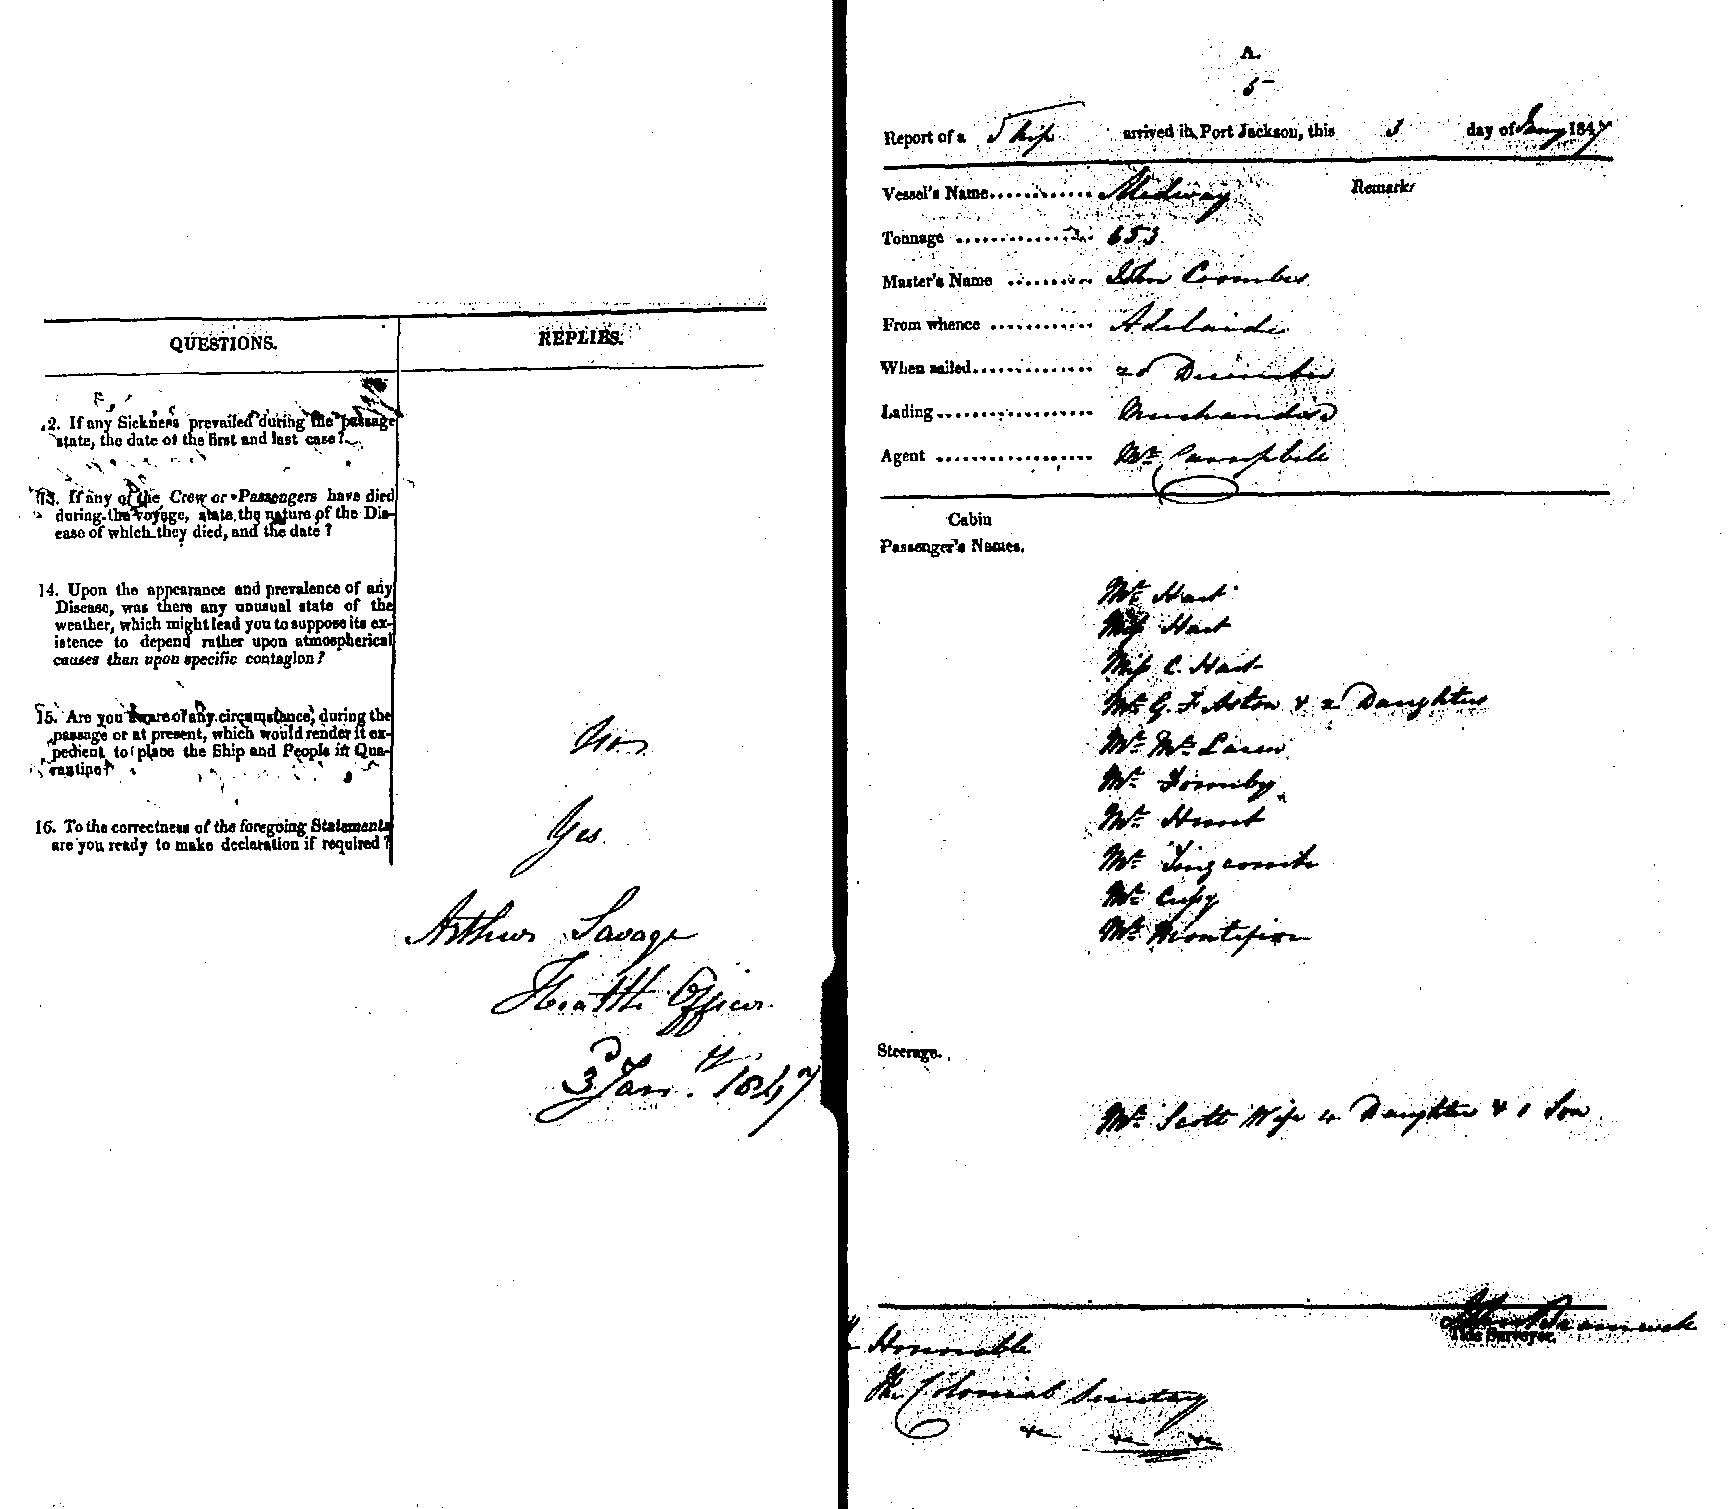 QUESTIONS.
REPLIES.
2. If any Sickness prevailed during the passage
state, the date of the first and last case?
13. If any of the Crew or Passengers have died
during the voyage, state the nature of the Dis-
ease of which they died, and the date?
14. Upon the appearance and prevalence of any
Disease, was there any unusual state of the
weather, which might lead you to suppose its ex-
istence to depend rather upon atmospherical
causes than upon specific contagion?
15. Are you aware of any circumstance, during the
passage or at present, which would render it ex-
pedient to place the Ship and People in Qua-
rantine?
No
16. To the correctness of the foregoing Statements
are you ready to make declaration if required?
Yes.
Arthur Savage
Health Officer
3d Jany. 1847
A.
5
Report of a Ship arrived in Port Jackson, this 3 day of Jany 1847
Vessel's Name Medway
Remarks
Tonnage 653
Master's Name John Coombes
From whence Adelaide
When sailed 20 December
Lading Merchandise
Agent Mr Campbell
Cabin
Passenger's Names.
Mr Hart
Miss Hart
Miss C. Hart
Mr G. F. Aston & 2 Daughters
Mr McLaren
Mr Formby
Mr Hunt
Mr
Mr
Mr Montefiore
Steerage.
Mr Scott Wife 4 Daughter & 1 Son
Tide Surveyor.
Honorable
The Colonial Secretary
&c &c &c